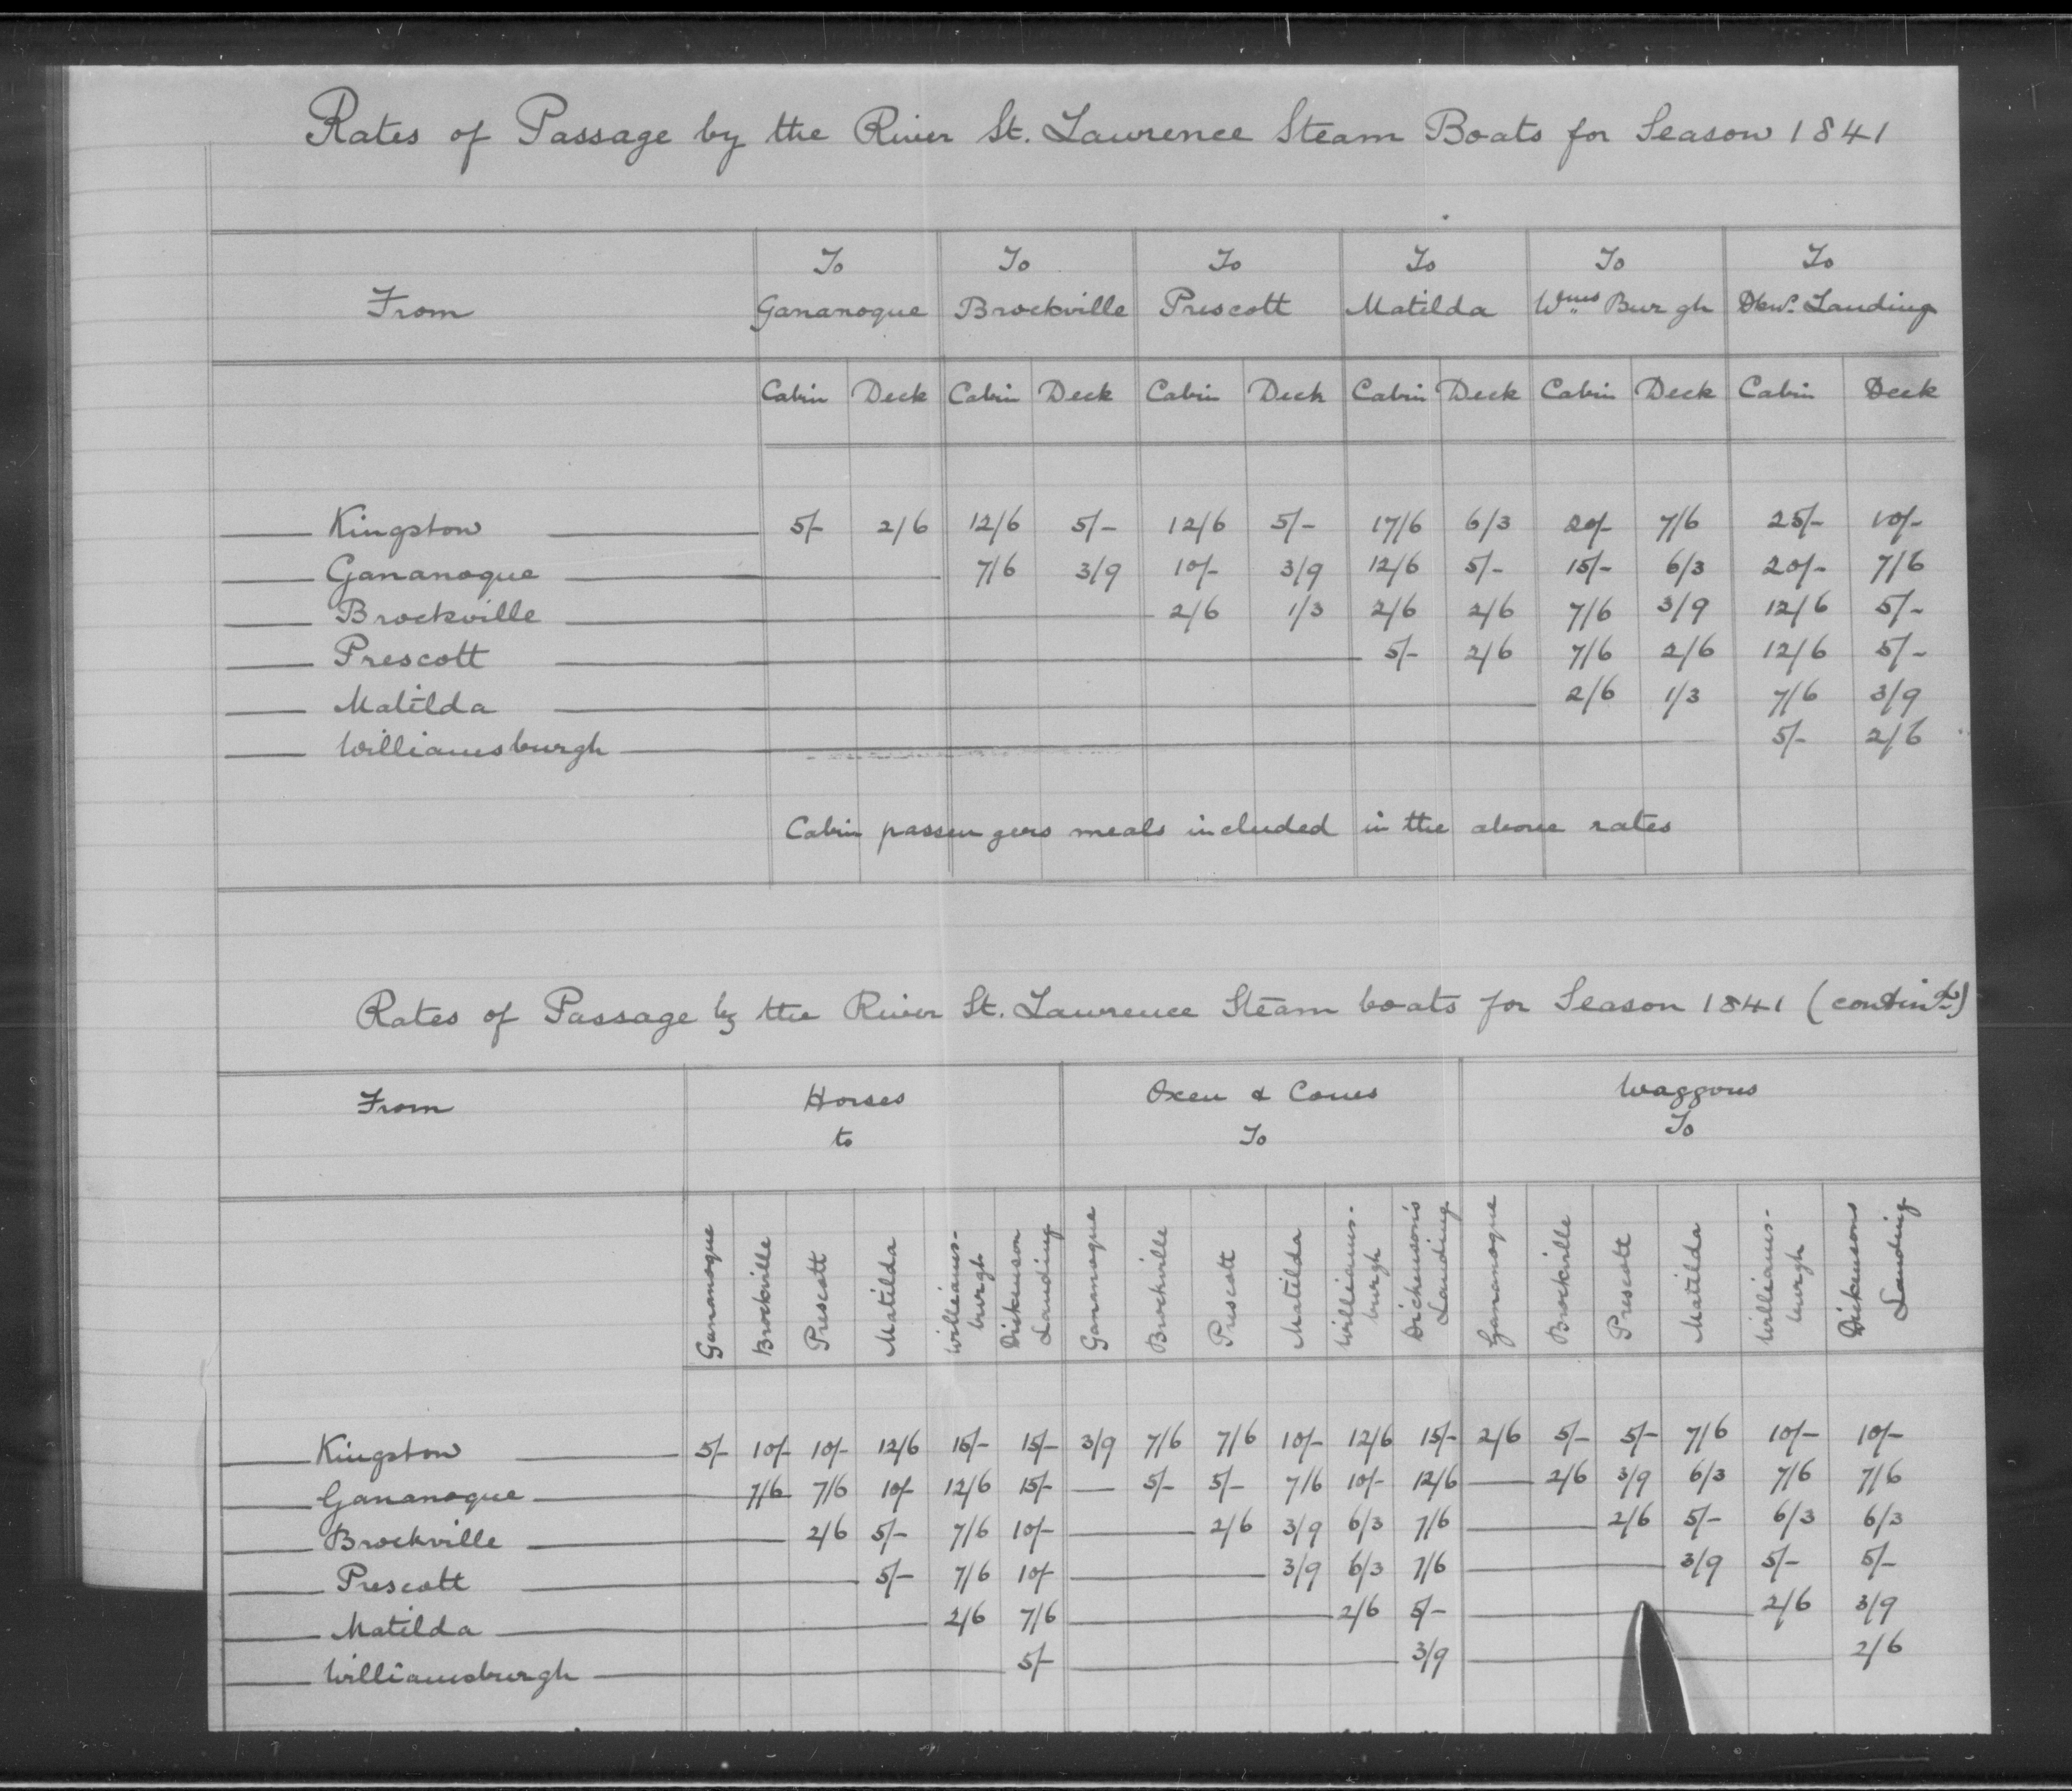 Rates of Passage by the River St. Lawrence Steam Boats for Season 1841
To To To To To To
From Gananoque Brockville Prescott Matilda Wms Burgh Landing
Cabin Deck Cabin Deck Cabin Deck Cabin Deck Cabin Deck Cabin Deck
Kingston 5/- 2/6 12/6 5/- 12/6 5/- 17/6 6/3 20/- 7/6 25/- 10/-
Gananoque 7/6 3/9 10/- 3/9 12/6 5/- 15/- 6/3 20/- 7/6
Brockville 2/6 1/3 2/6 2/6 7/6 3/9 12/6 5/-
Prescott 5/- 2/6 7/6 2/6 12/6 5/-
Matilda 2/6 1/3 7/6 3/9
Williamsburgh 5/- 2/6
Cabin passengers meals included in the above rates
Rates of Passage by the River St. Lawrence Steam boats for Season 1841 (contind)
From Horses Oxen & Cows Waggons
to To To
Gananoque Brockville Prescott Matilda Williams-burgh Dickenson Landing Gananoque Brockville Prescott Matilda Williams-burgh Dickenson's Landing Gananoque Brockville Prescott Matilda Williams-burgh Dickensons Landing
Kingston 5/- 10/- 10/- 12/6 15/- 15/- 3/9 7/6 7/6 10/- 12/6 15/- 2/6 5/- 5/- 7/6 10/- 10/-
Gananoque 7/6 7/6 10/- 12/6 15/- 5/- 5/- 7/6 10/- 12/6 2/6 3/9 6/3 7/6 7/6
Brockville 2/6 5/- 7/6 10/- 2/6 3/9 6/3 7/6 2/6 5/- 6/3 6/3
Prescott 5/- 7/6 10/- 3/9 6/3 7/6 3/9 5/- 5/-
Matilda 2/6 7/6 2/6 5/- 2/6 3/9
Williamsburgh 5/- 3/9 2/6